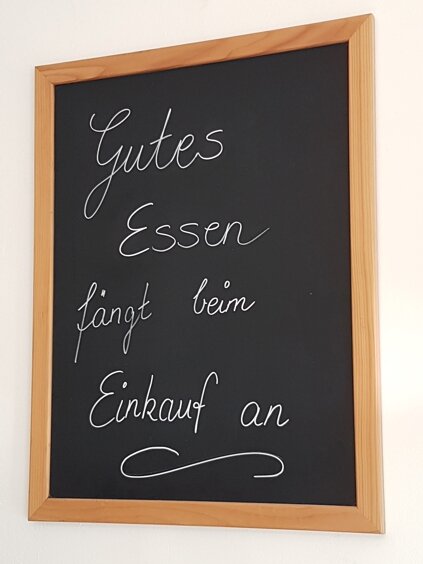 Gutes
Essen
fängt beim
Einkauf an